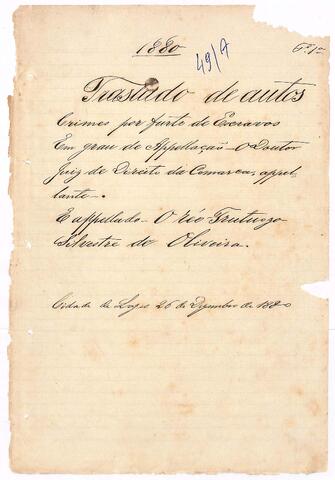 1880
49/A
Traslado de autos
Crimes por furto de Escravos
Em grau de Appellação - O Doutor
Juiz de Direito da Comarca, appel-
lante -.
E appellado - O réo Frutuozo
Silvestre de Oliveira.
Cidade de Lages 26 de Dezembro de 1880